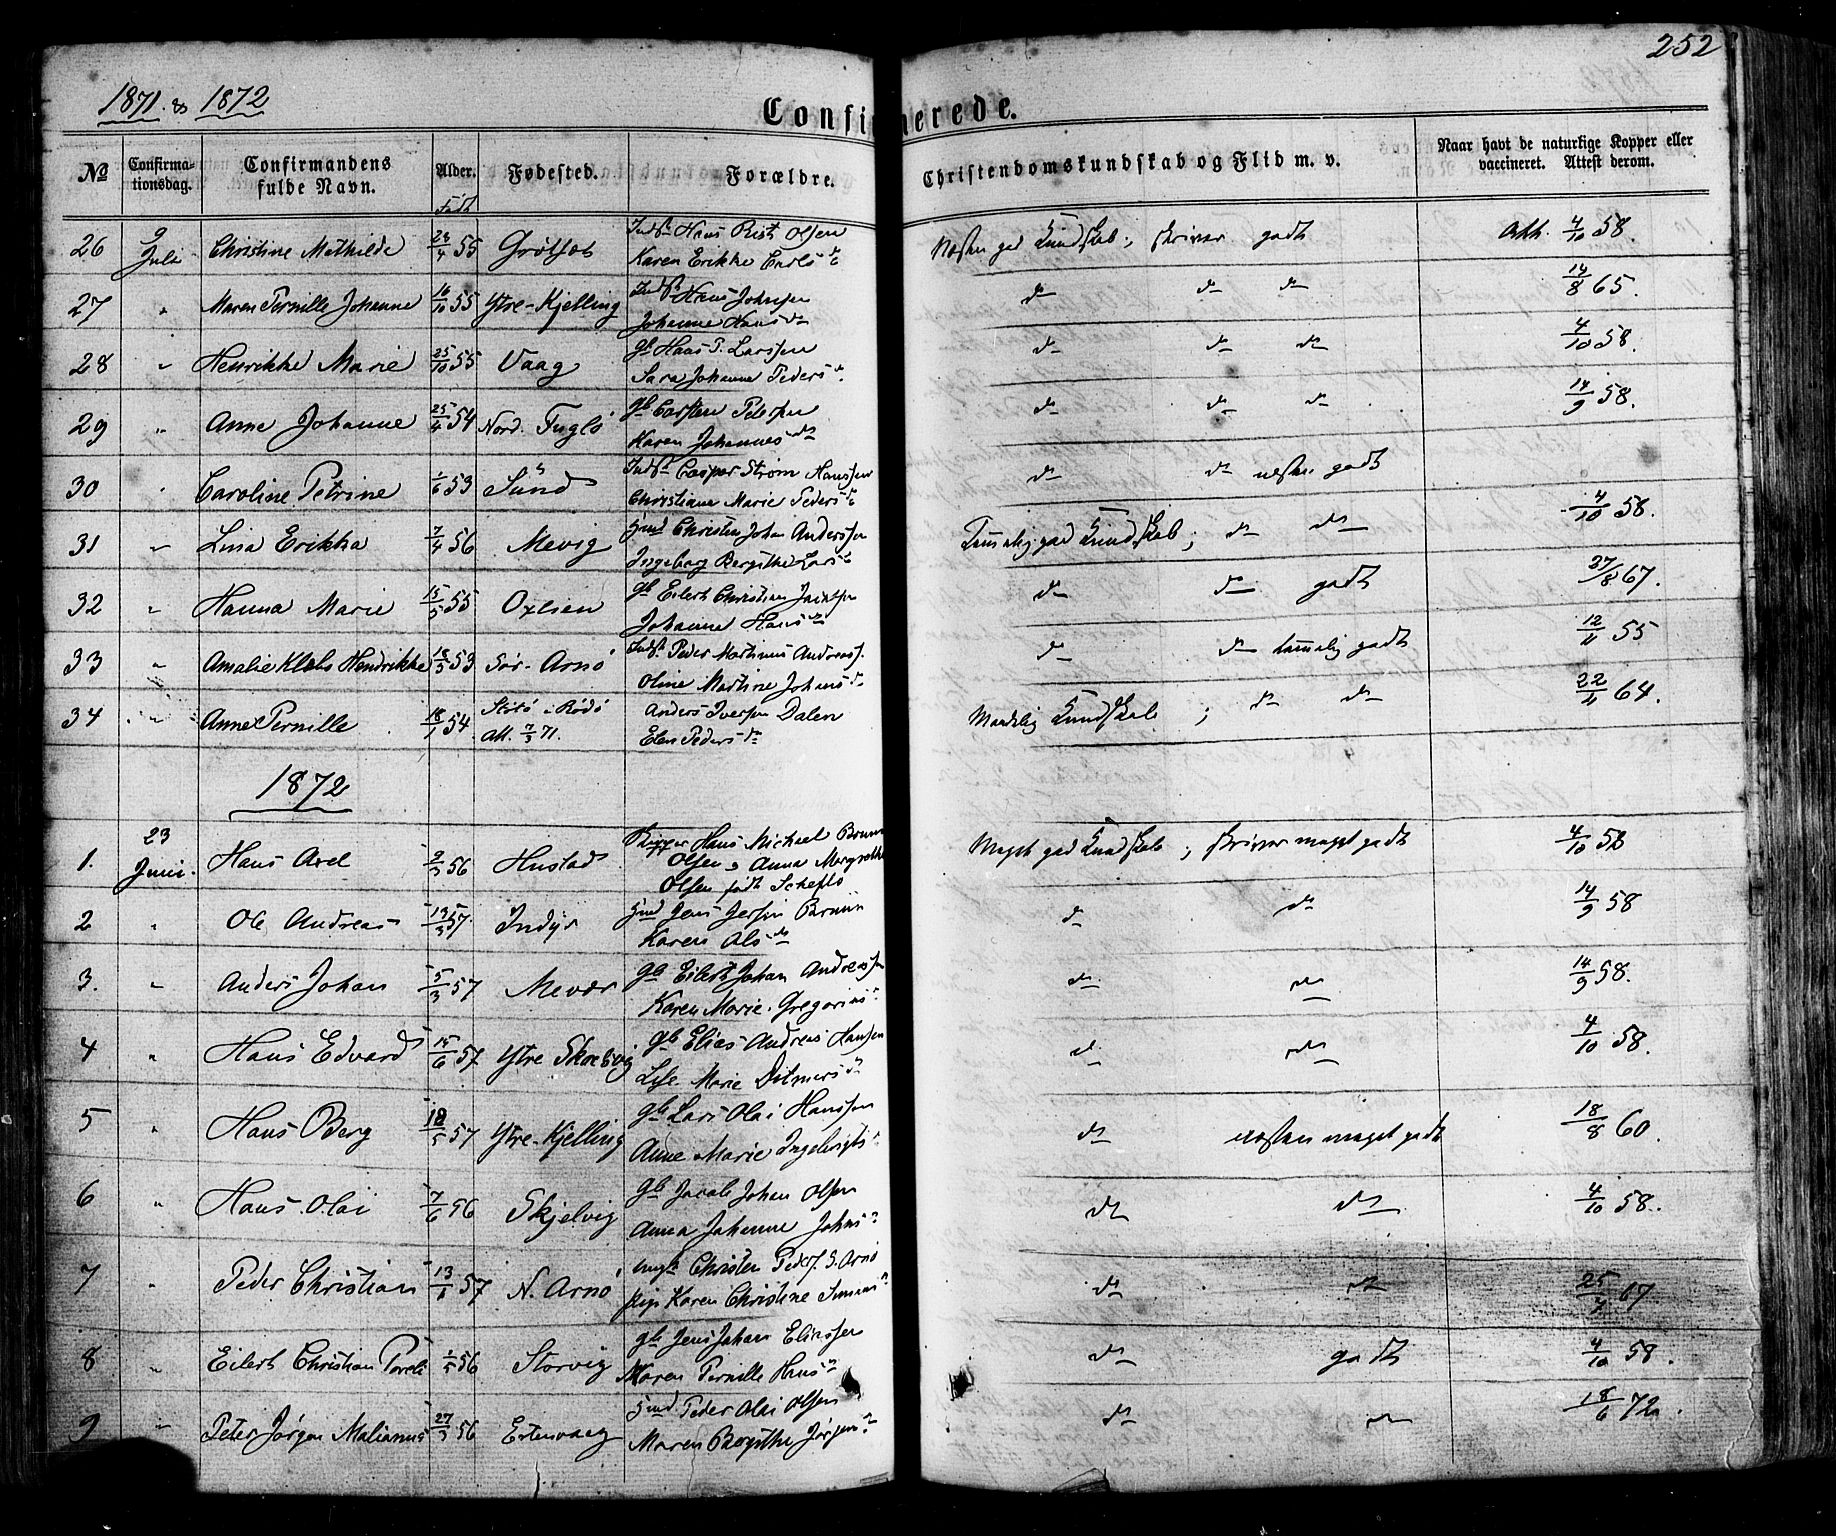 252
1871 & 1872
Confirmerede.
No
Confirma-
tionsdag.
Confirmandens
fulde Navn.
Alder.
Født
Fødested.
Forældre.
Christendomskundskab og Flid m. v.
Naar havt de naturlige Kopper eller
vaccineret. Attest derom.
26 9 Juli Christine Mathilde 24/4 55 Grøtføt Indst Hans Rist Olsen
Karen Erikke Carls d. Næsten god Kundskab; skriver godt Atth. 4/10 58.
27 " Maren Pernille Johanne 16/10 55 Ytre-Kjelling Indst Hans Johnsen
Johanne Hansdr do do do 14/8 65.
28 " Henrikke Marie 25/10 55 Vaag gb Hans P. Larssen
Sara Johanne Peders d. do do do 4/10 58.
29 " Anne Johanne 25/4 54 Nord. Fuglø gb Carsten Petersen
Karen Johannesdr do do do 14/9 58.
30 " Caroline Petrine 1/6 53 Sund Indst Casper Strøm Hanssen
Christiane Marie Pedersdr do do næsten godt
31 " Lina Erikka 7/4 56 Mevig Huusmd Christen Johan Anderssen
Ingeborg Bergithe Larsdr Temmelig god Kundskab; do do 4/10 58.
32 " Hanna Marie 15/5 55 Oxlien gb Eilert Christian
Johanne Hansdr do do godt 27/8 67.
33 " Amalie Klebo Hendrikke 18/3 53 Sør-Arnø Indst. Peder Martinus Andreass.
Oline Martine Johnsdr do do temmelig godt 12/11 55
34 " Anne Pernille 18/1 54 Støtø i Rødø
Att. 7/3 71. Anders Iversen Dalen
Elen Pedersdr Maadelig Kundskab; do do 22/11 64.
1872
1. 23 Juni. Hans Axel 9/3 56 Hustad Skipper Hans Michael Bruun
Olsen & Anna Margrethe
Olsen født Schefto Meget god Kundskab; skriver meget godt 4/10 58
2 " Ole Andreas 19/3 57. Indyr Huusmd Jens Jersin Bruun
Karen Olsdr do do 14/9 58
3. " Anders Johan 5/3 57 Mevær gb Eilert Johan Andreassen
Karen Marie Gregoriusdr do do 14/9 58.
4 " Hans Edvard 15/6 57 Ytre gb Elias Andreas Hansen
Lise Marie Ditmersdr do do 4/10 58.
5 " Hans Berg 18/5 57 Ytre-Kjelling gb Lars Olai Hanssen
Anne Marie Ingebrigtsdr do næsten meget godt 18/8 60.
6 " Hans Olai 7/6 56 Skjelvig gb Jacob Johan Olsen
Anna Johanne Johnsdr do do 4/10 58.
7 " Peder Christian 13/1 57 N. Arnø ungk Christen Peders. S. Arnø
pige Karen Christine Simonsdr do do 25/7 67
8 " Eilert Christian Poveli 1/5 56 Storvig gb Jens Johan Eliassen
Maren Pernille Hansdr do godt 4/10 58.
9 " Peter Jørgen Malianus 27/3 56 Estenvaag Huusmd Peder Olai Olsen
Maren Bergithe Jørgensdr do do 18/6 72.